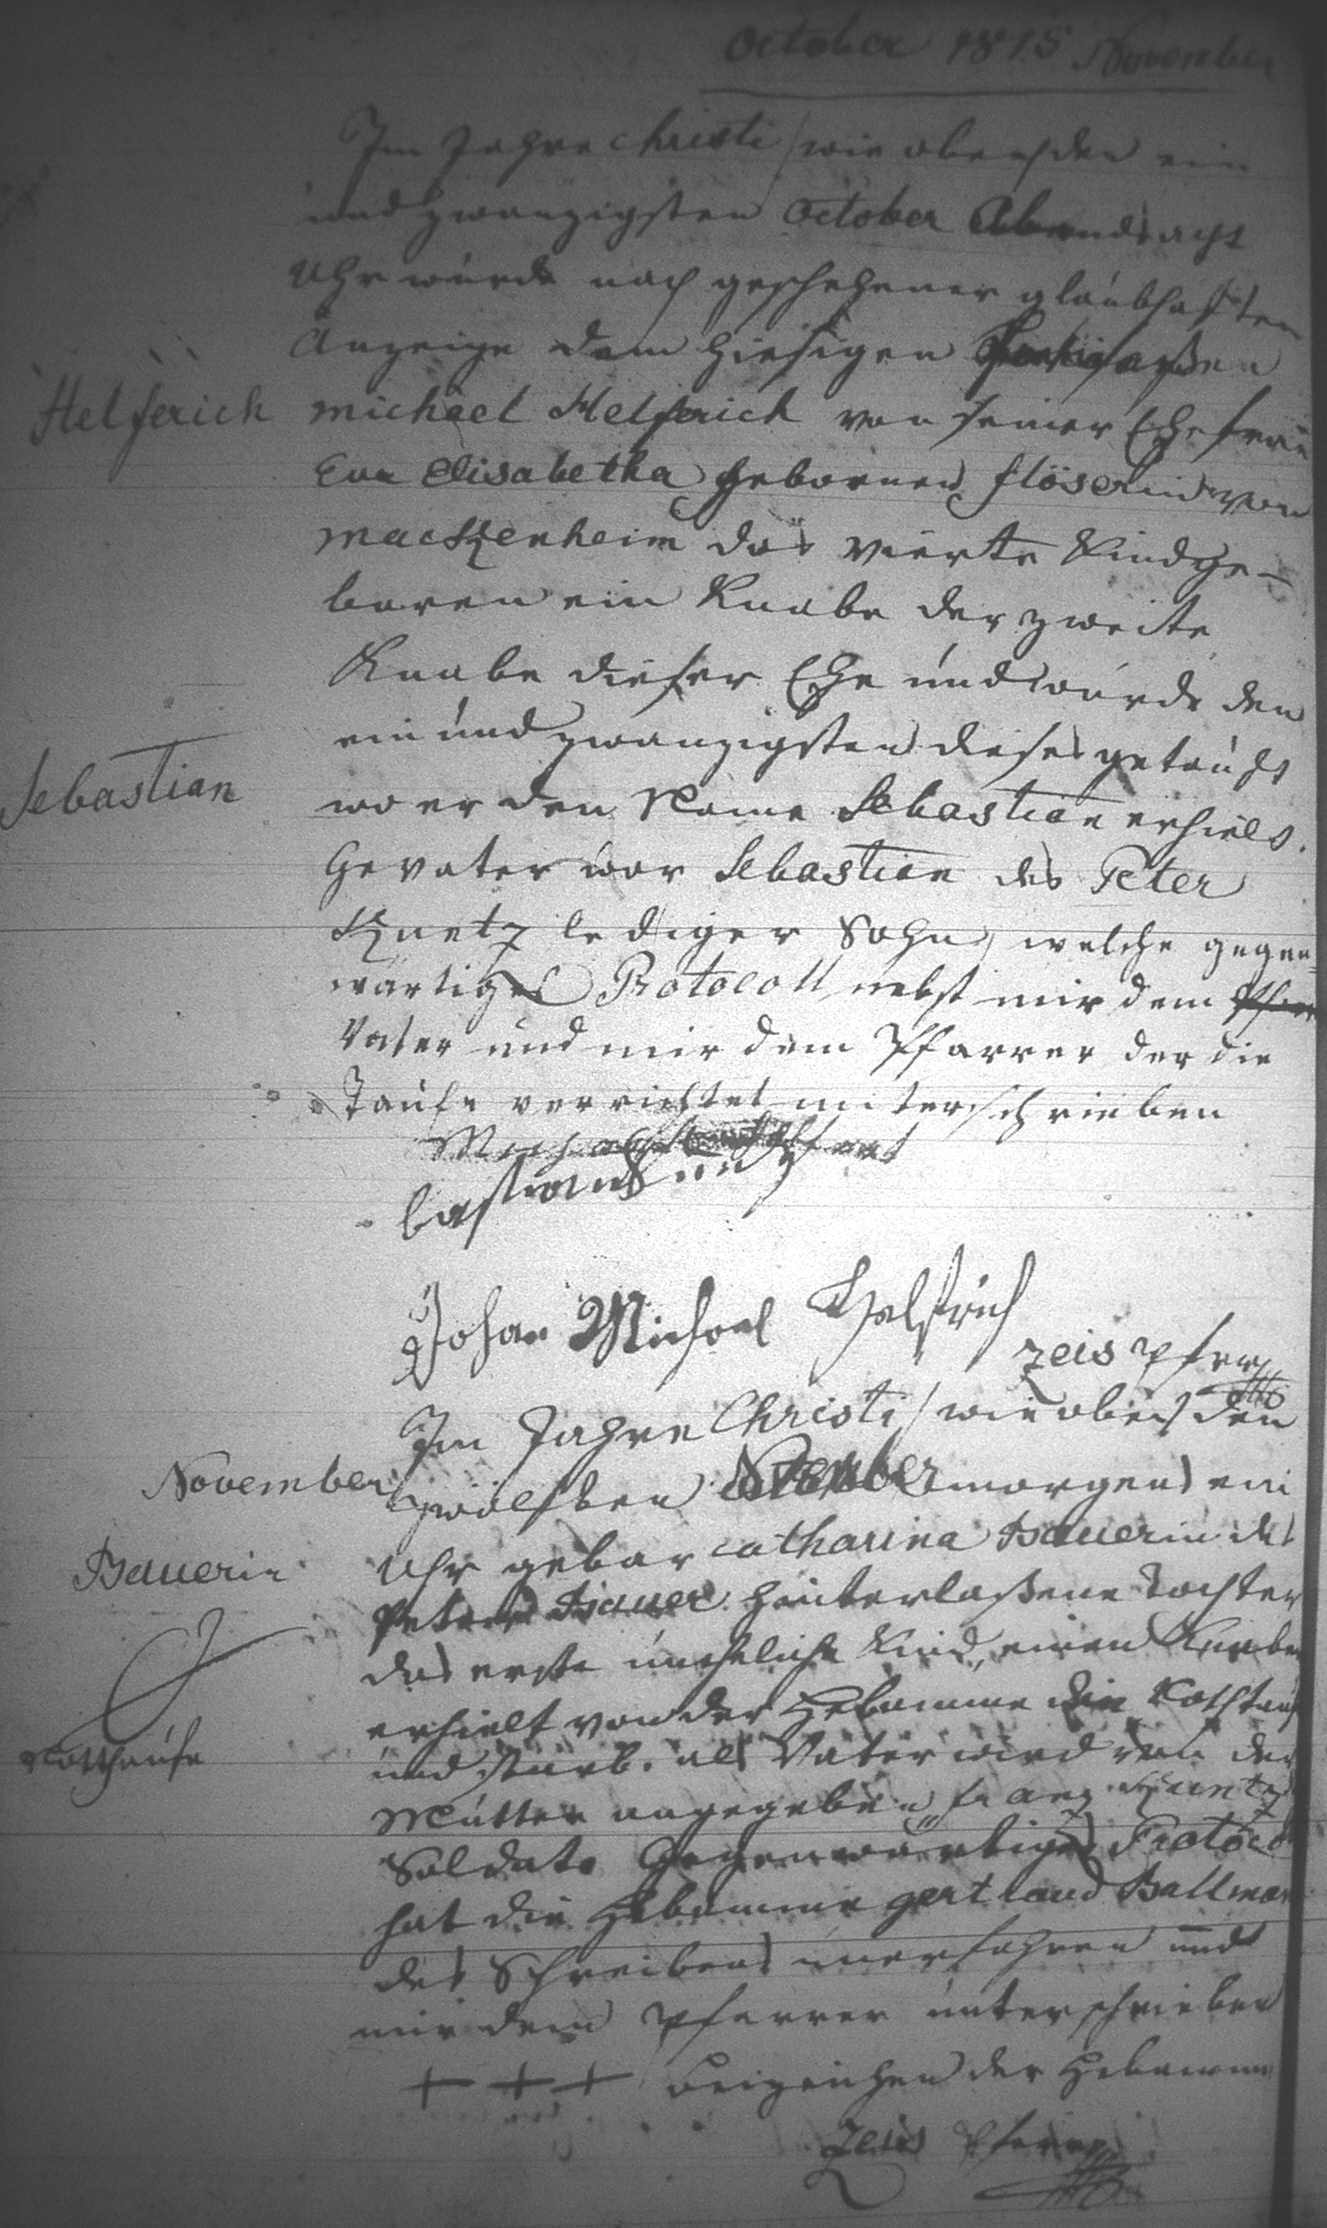 October 1815 November
Im Jahre Christi / wie oben / den ein
und zwanzigsten October Abends acht
Uhr wurde nach geschehener glaubhaften
Anzeige dem hiesigen
Helferich
Michael Helferich von seiner Ehefrau
Eva Elisabetha gebornen flöserin von
Mackenheim das vierte Kind ge-
boren ein Knabe der zweite
Knabe dieser Ehe und wurde den
ein und zwanzigsten dieses getauft
Sebastian
wo er den Name Sebastian erhielt.
Gevater war Sebastian des Peter
Kuntz lediger Sohn, welche gegen-
wärtiges Protocoll nebst mir dem
Vater und mir dem Pfarrer der die
Taufe verrichtet unterschrieben
Johan Michael Helfrich
Zeis Pfarrer
Im Jahre Christi / wie oben / den
November
zwölften November morgens ein
Bauerin
Uhr gebar Catharina Bauerin des
Peter Bauer hinterlaßene Tochter
das erste uneheliche Kind, einen Knaben
erhielt von der Hebamme die Nothtauf
Notthaufe
und starb. als Vater wird von der
Mutter angegeben franz Kuntz
Soldat. Gegenwärtiges Protocoll
hat die Hebamme gertraud Ballman
des Schreibens unerfahren und
mir dem Pfarrer unterschrieben
+ + + Beizeichen der Hebamme
Zeis Pfarrer